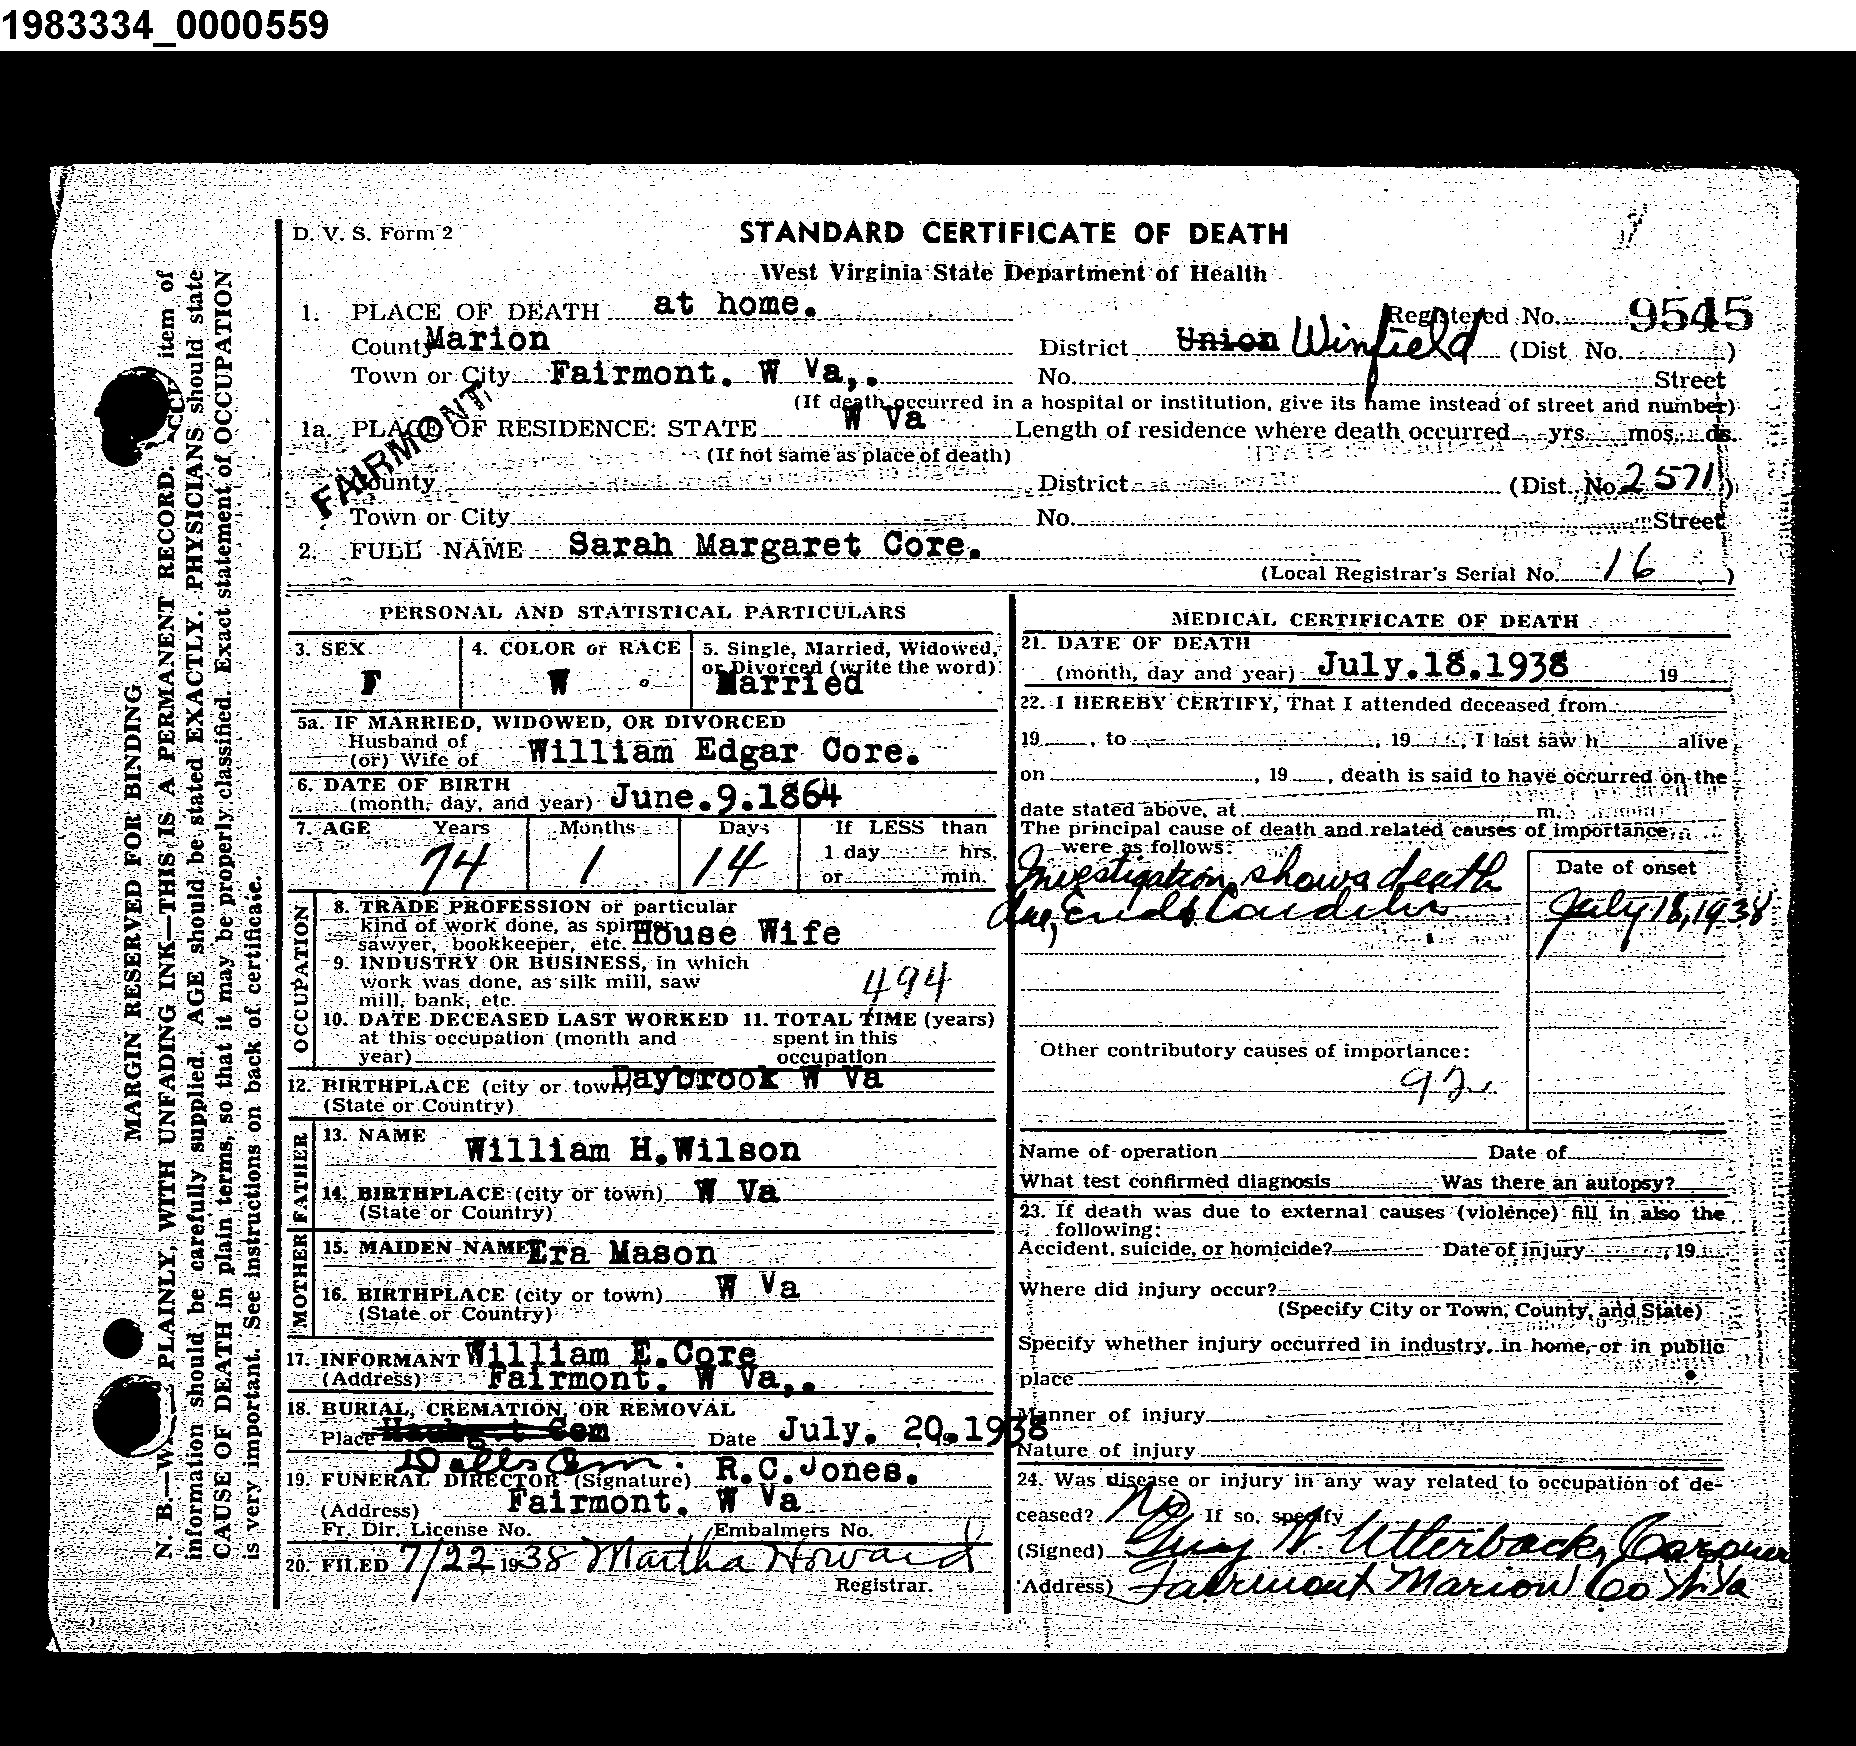 1983334_0000559
D. V. S. Form 2
STANDARD CERTIFICATE OF DEATH
West Virginia State Department of Health
1. PLACE OF DEATH at home. Registered No. 9545
County Marion District Union Winfield (Dist. No. )
Town or City Fairmont. W Va,. No. Street
(If death occurred in a hospital or institution, give its name instead of street and number)
1a. PLACE OF RESIDENCE: STATE W Va Length of residence where death occurred yrs. mos. ds.
(If not same as place of death)
FAIRMONT
County District (Dist. No. 2571)
Town or City No. Street
2. FULL NAME Sarah Margaret Core.
(Local Registrar's Serial No. 16 )
PERSONAL AND STATISTICAL PARTICULARS
3. SEX 4. COLOR or RACE 5. Single, Married, Widowed,
or Divorced (write the word)
F W Married
5a. IF MARRIED, WIDOWED, OR DIVORCED
Husband of
(or) Wife of William Edgar Core.
6. DATE OF BIRTH
(month, day, and year) June.9.1864
7. AGE Years Months Days If LESS than
74 1 14 1 day hrs.
or min.
OCCUPATION
8. TRADE PROFESSION or particular
kind of work done, as spinner,
sawyer, bookkeeper, etc. House Wife
9. INDUSTRY OR BUSINESS, in which
work was done, as silk mill, saw
mill, bank, etc. 494
10. DATE DECEASED LAST WORKED 11. TOTAL TIME (years)
at this occupation (month and spent in this
year) occupation
12. BIRTHPLACE (city or town) Daybrook W Va
(State or Country)
FATHER
13. NAME William H.Wilson
14. BIRTHPLACE (city or town) W Va
(State or Country)
MOTHER
15. MAIDEN NAME Era Mason
16. BIRTHPLACE (city or town) W Va
(State or Country)
17. INFORMANT William E.Core
(Address) Fairmont. W Va,.
18. BURIAL, CREMATION, OR REMOVAL
Place Cem Date July. 20.1938
Cem.
19. FUNERAL DIRECTOR (Signature) R.C.Jones.
(Address) Fairmont. W Va
Fr. Dir. License No. Embalmers No.
20. FILED 7/22 1938 Martha Howard
Registrar.
MEDICAL CERTIFICATE OF DEATH
21. DATE OF DEATH
(month, day and year) July.18.1938 19
22. I HEREBY CERTIFY, That I attended deceased from
19 , to , 19 , I last saw h alive
on , 19 , death is said to have occurred on the
date stated above, at m.
The principal cause of death and related causes of importance
were as follows:
Date of onset
Investigation shows death
due, July 18, 1938
Other contributory causes of importance:
92
Name of operation Date of
What test confirmed diagnosis Was there an autopsy?
23. If death was due to external causes (violence) fill in also the
following:
Accident, suicide, or homicide? Date of injury , 19
Where did injury occur?
(Specify City or Town, County, and State)
Specify whether injury occurred in industry, in home, or in public
place
Manner of injury
Nature of injury
24. Was disease or injury in any way related to occupation of de-
ceased? No If so, specify
(Signed) Guy W. Utterback, Coroner
(Address) Fairmont Marion Co W Va
MARGIN RESERVED FOR BINDING
PLAINLY, WITH UNFADING INK—THIS IS A PERMANENT RECORD. item of
information should be carefully supplied. AGE should be stated EXACTLY. PHYSICIANS should state
CAUSE OF DEATH in plain terms, so that it may be properly classified. Exact statement of OCCUPATION
is very important. See instructions on back of certificate.